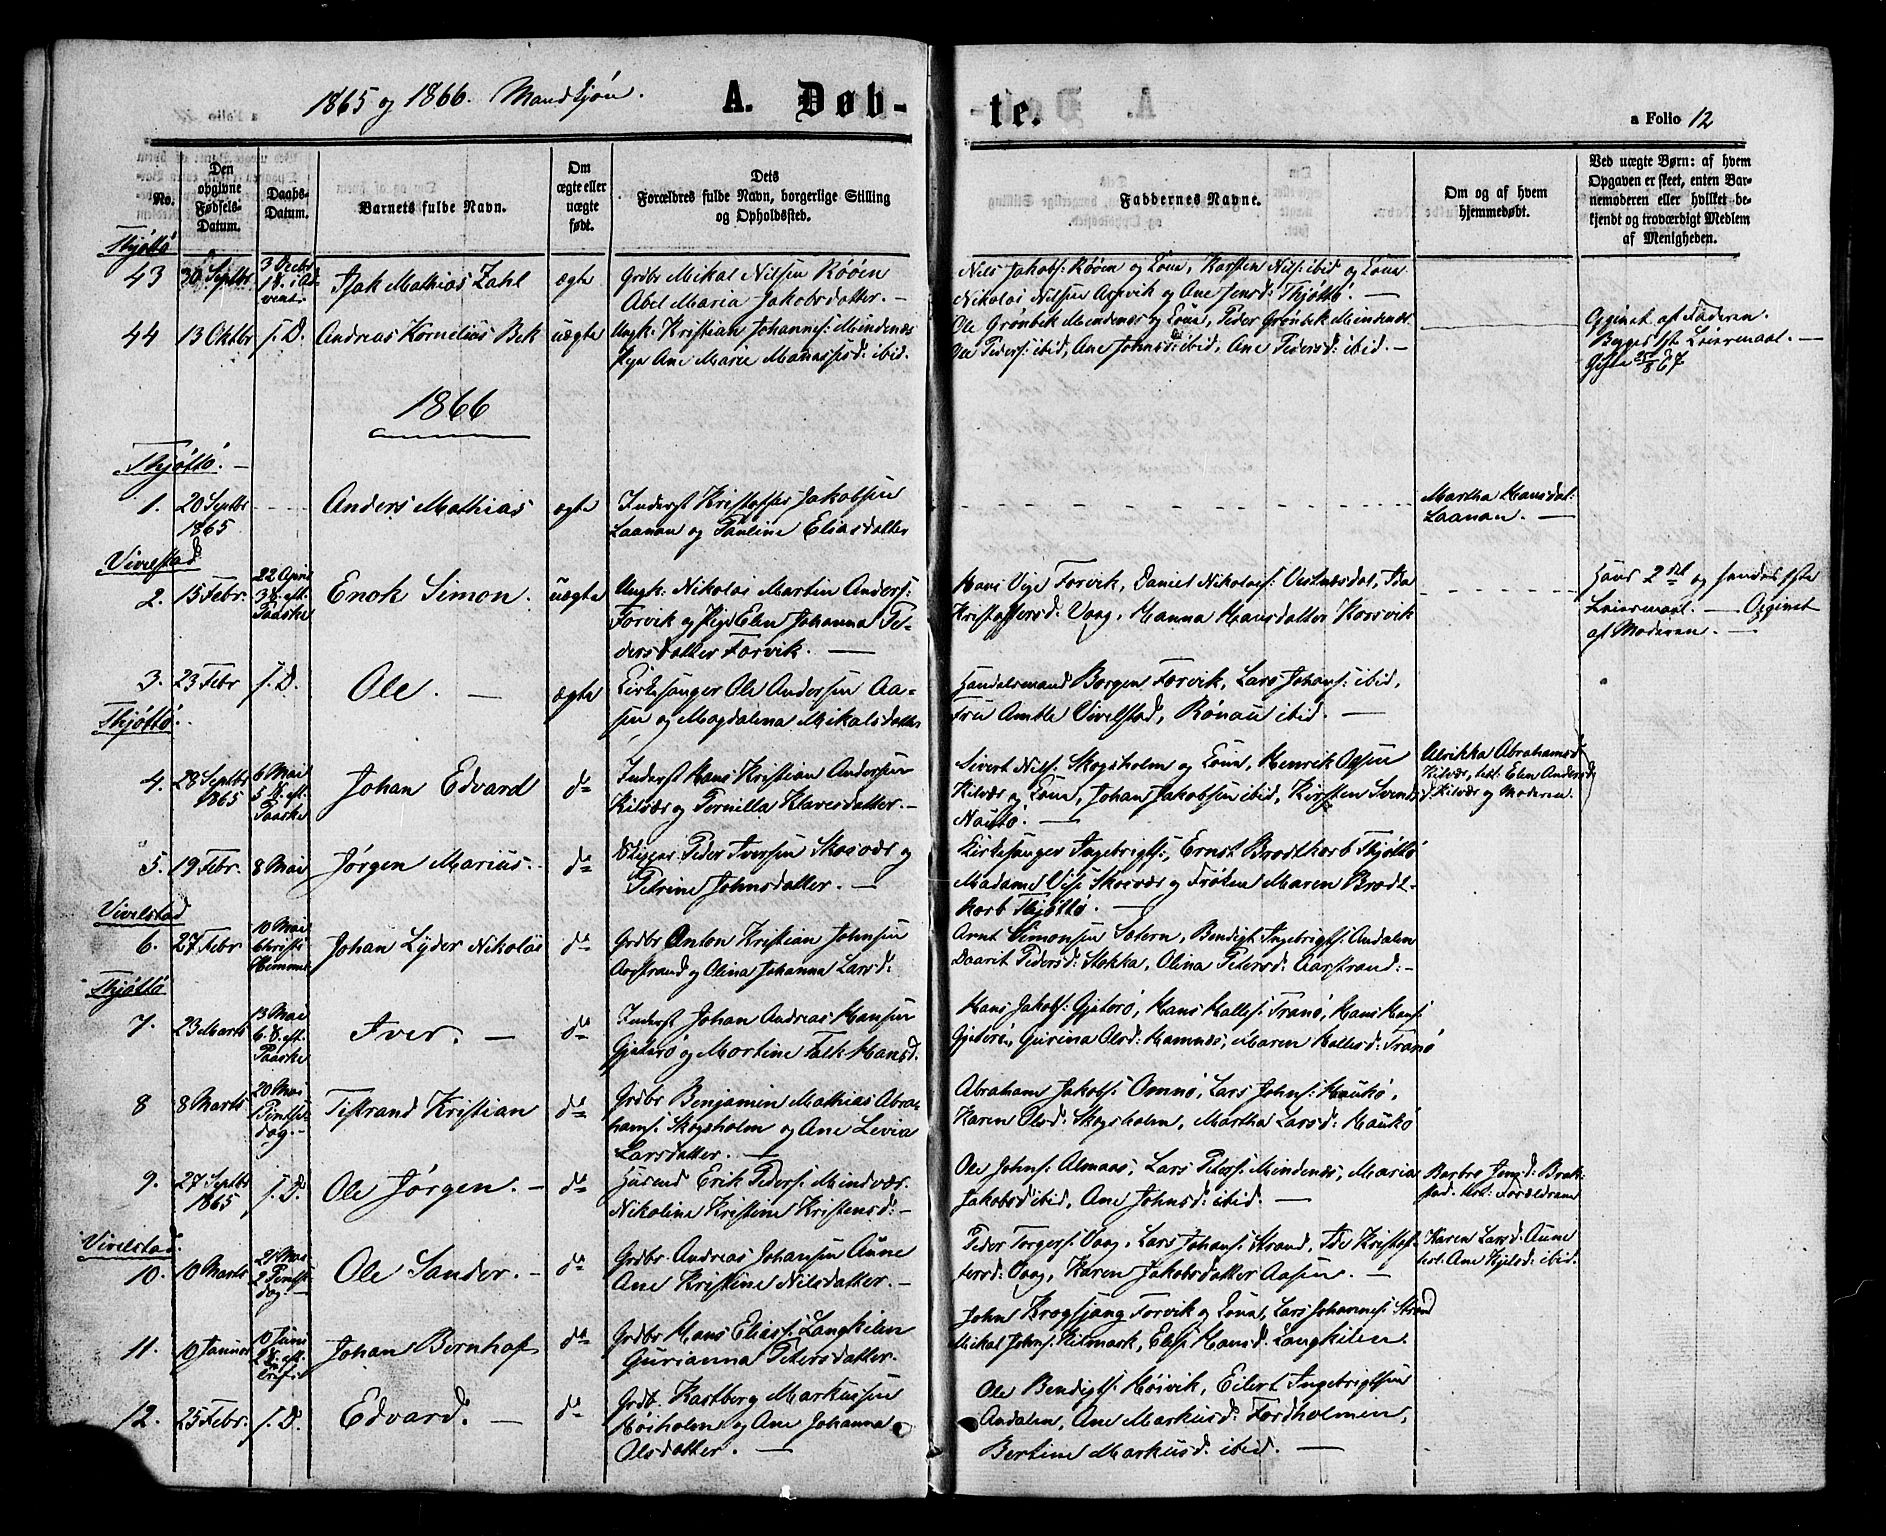 1865 og 1866. Mandkjøn.
A. Døb-
te.
a Folio 12
No.
Den opgivne Fødsels-Datum.
Daabs-Datum.
Barnets fulde Navn.
Om ægte eller uægte født.
Dets Forældres fulde Navn, borgerlige Stilling og Opholdssted.
Faddernes Navne.
Om og af hvem hjemmedøbt.
Ved uægte Børn: af hvem
Opgaven er skeet, enten Bar-
nemoderen eller hvilket be-
kjendt og troværdigt Medlem
af Menigheden.
Thjøttø
43 30 Septbr 3 Decbr 1 S. i Advent Isak Mathias Zahl ægte Grdbr Mikal Nilsen Røøen
Abel Maria Jakobsdatter. —
Nils Jakobs: Røøen og Kone, Karsten Nils: ibid og Kone
Nikolai Nilsen Arsvik og Ane Jensd: Thjøttø. —
44 13 Oktbr S. D. Andreas Kornelius Bek uægte Ungk: Kristian Johannes: Mindenæs
Pige Ane Marie Manassesd: ibid.
Ole Grønbek Mindenæs og Kone, Peder Grønbek Mindenæs
Ole Peders: ibid, Ane Johnsd: ibid, Ane Pedersd: ibid. —
Opgivet af Faderen.
Begges 1ste Leiermaal. —
Gifte 25/8 67
1866
Thjøttø. —
1. 20 Septbr 1865 Anders Mathias ægte Inderst Kristoffer Jakobsen
Laanan og Pauline Eliasdatter
Martha Hansdat:
Laanan. —
Vivelstad
2. 15 Febr. 22 April 3 S. eft. Paaske Enok Simon. uægte Ungk: Nikolai Martin Anders:
Forvik og Pige Elen Johanna Pe-
dersdatter Forvik. —
Hans Vige Forvik, Daniel Nikolais: Vistnæsdal, Ida
Kristoffersd: Vaag, Hanna Hansdatter Korsvik
Hans 2det og hendes 1ste
Leiermaal. — Opgivet
af Moderen. —
3. 23 Febr S. D. Ole. — ægte Kirkesanger Ole Andersen Aa-
sen og Magdalena Mikalsdatter
Handelsmand Borgen Forvik, Lars Johans: ibid,
Fru Amble Vivelstad, Rønau ibid. —
Thjøttø.
4. 28 Septbr 1865 6 Mai 5 S. eft. Paaske Johan Edvard do Inderst Hans Kristian Andersen
Kilvær og Pernilla Klavesdatter. —
Sivert Nils: Skogsholm og Kone, Henrik Olsen
Kilvær og Kone, Johan Jakobsen ibid, Kirsten Svends
Nautø. —
Ulrikka Abrahamsd
Kilvær, test. Elen Andersd
Kilvær og Moderen.
5. 19 Febr. 8 Mai Jørgen Marius. do Skipper Peder Iversen Skosvær og
Petrine Johnsdatter. —
Kirkesanger Ingebrigts:, Ernst Brodtkorb Thjøttø
Madame Vise Skosvær og Frøken Maren Brodt-
korb Thjøttø. —
Vivelstad
6. 27 Febr 10 Mai Christi Himmel Johan Lyder Nikolai do Grdbr Anton Kristian Johnsen
Aarstrand og Olina Johanna Larsd:
Arnt Simonsen Sotern, Bendigt Ingebrigts: Andalen
Daarit Pedersd: Stokka, Olina Petersd: Aarstrand: —
Thjøttø
7. 23 Marts 13 Mai 6 S. eft. Paaske Iver. — do Inderst Johan Andreas Hansen
Gjeterø og Martine Falk Hansd:
Hans Jakobs: Gjeterø, Hans Halles: Tranø, Hans Hans:
Gjeterø, Gurina Olsd: Hamnes, Maren Hallesd: Tranø
8 8 Marts 20 Mai Pintsedag. — Tistrand Kristian do Grdbr Benjamin Mathias Abra-
hams: Skogsholm og Ane Levia
Larsdatter. —
Abraham Jakobs: Omnø, Lars Johns: Haukø,
Karen Olsd: Skogsholm, Martha Larsd: Haukø
9. 27 Septbr 1865 S. D. Ole Jørgen. — do Husmd Erik Peders: Mindvær.
Nikoline Kristine Kristensd: —
Ole Johns: Almaas, Lars Peters: Mindenæs, Maria
Jakobsd ibid, Ane Johnsd: ibid. —
Barbro Jensd: Brak-
stad. test: Forældrene
Vivelstad.
10. 10 Marts 21 Mai 2 Pintsedag. — Ole Sander. — do Grdbr. Andreas Johansen Aune
Ane Kristine Nilsdatter. —
Peder Torgers: Vaag, Lars Johans: Strand, Ide Kristof-
fersd: Vaag, Karen Jakobsdatter Aasen. —
Karen Larsd: Aune
test. Ane Kjelsd: ibid.
11. 10 Januar 10 Juni 2 S. eft. Trefst. Johan Bernhof do Grdbr Hans Elias: Langkilen
Gurianna Petersdatter.
John Krogsjang Forvik og Kone, Lars Johannes: Strand
Mikal Johns: Kilmark, Elise Hansd: Langkilen.
12. 25 Febr. S. D. Edvard. — do Grdb. Kastberg Markussen
Høiholm og Ane Johanna
Olsdatter. —
Ole Bendigts: Høivik, Eilert Ingebrigtsen
Andalen, Ane Markusd: Fordholmen,
Bertine Markusd. ibid. —